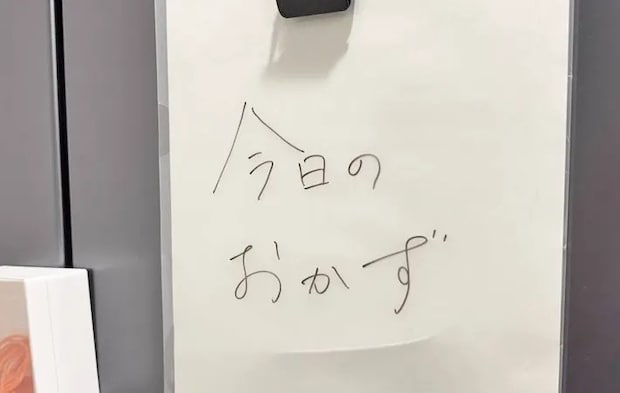 今日の
おかず